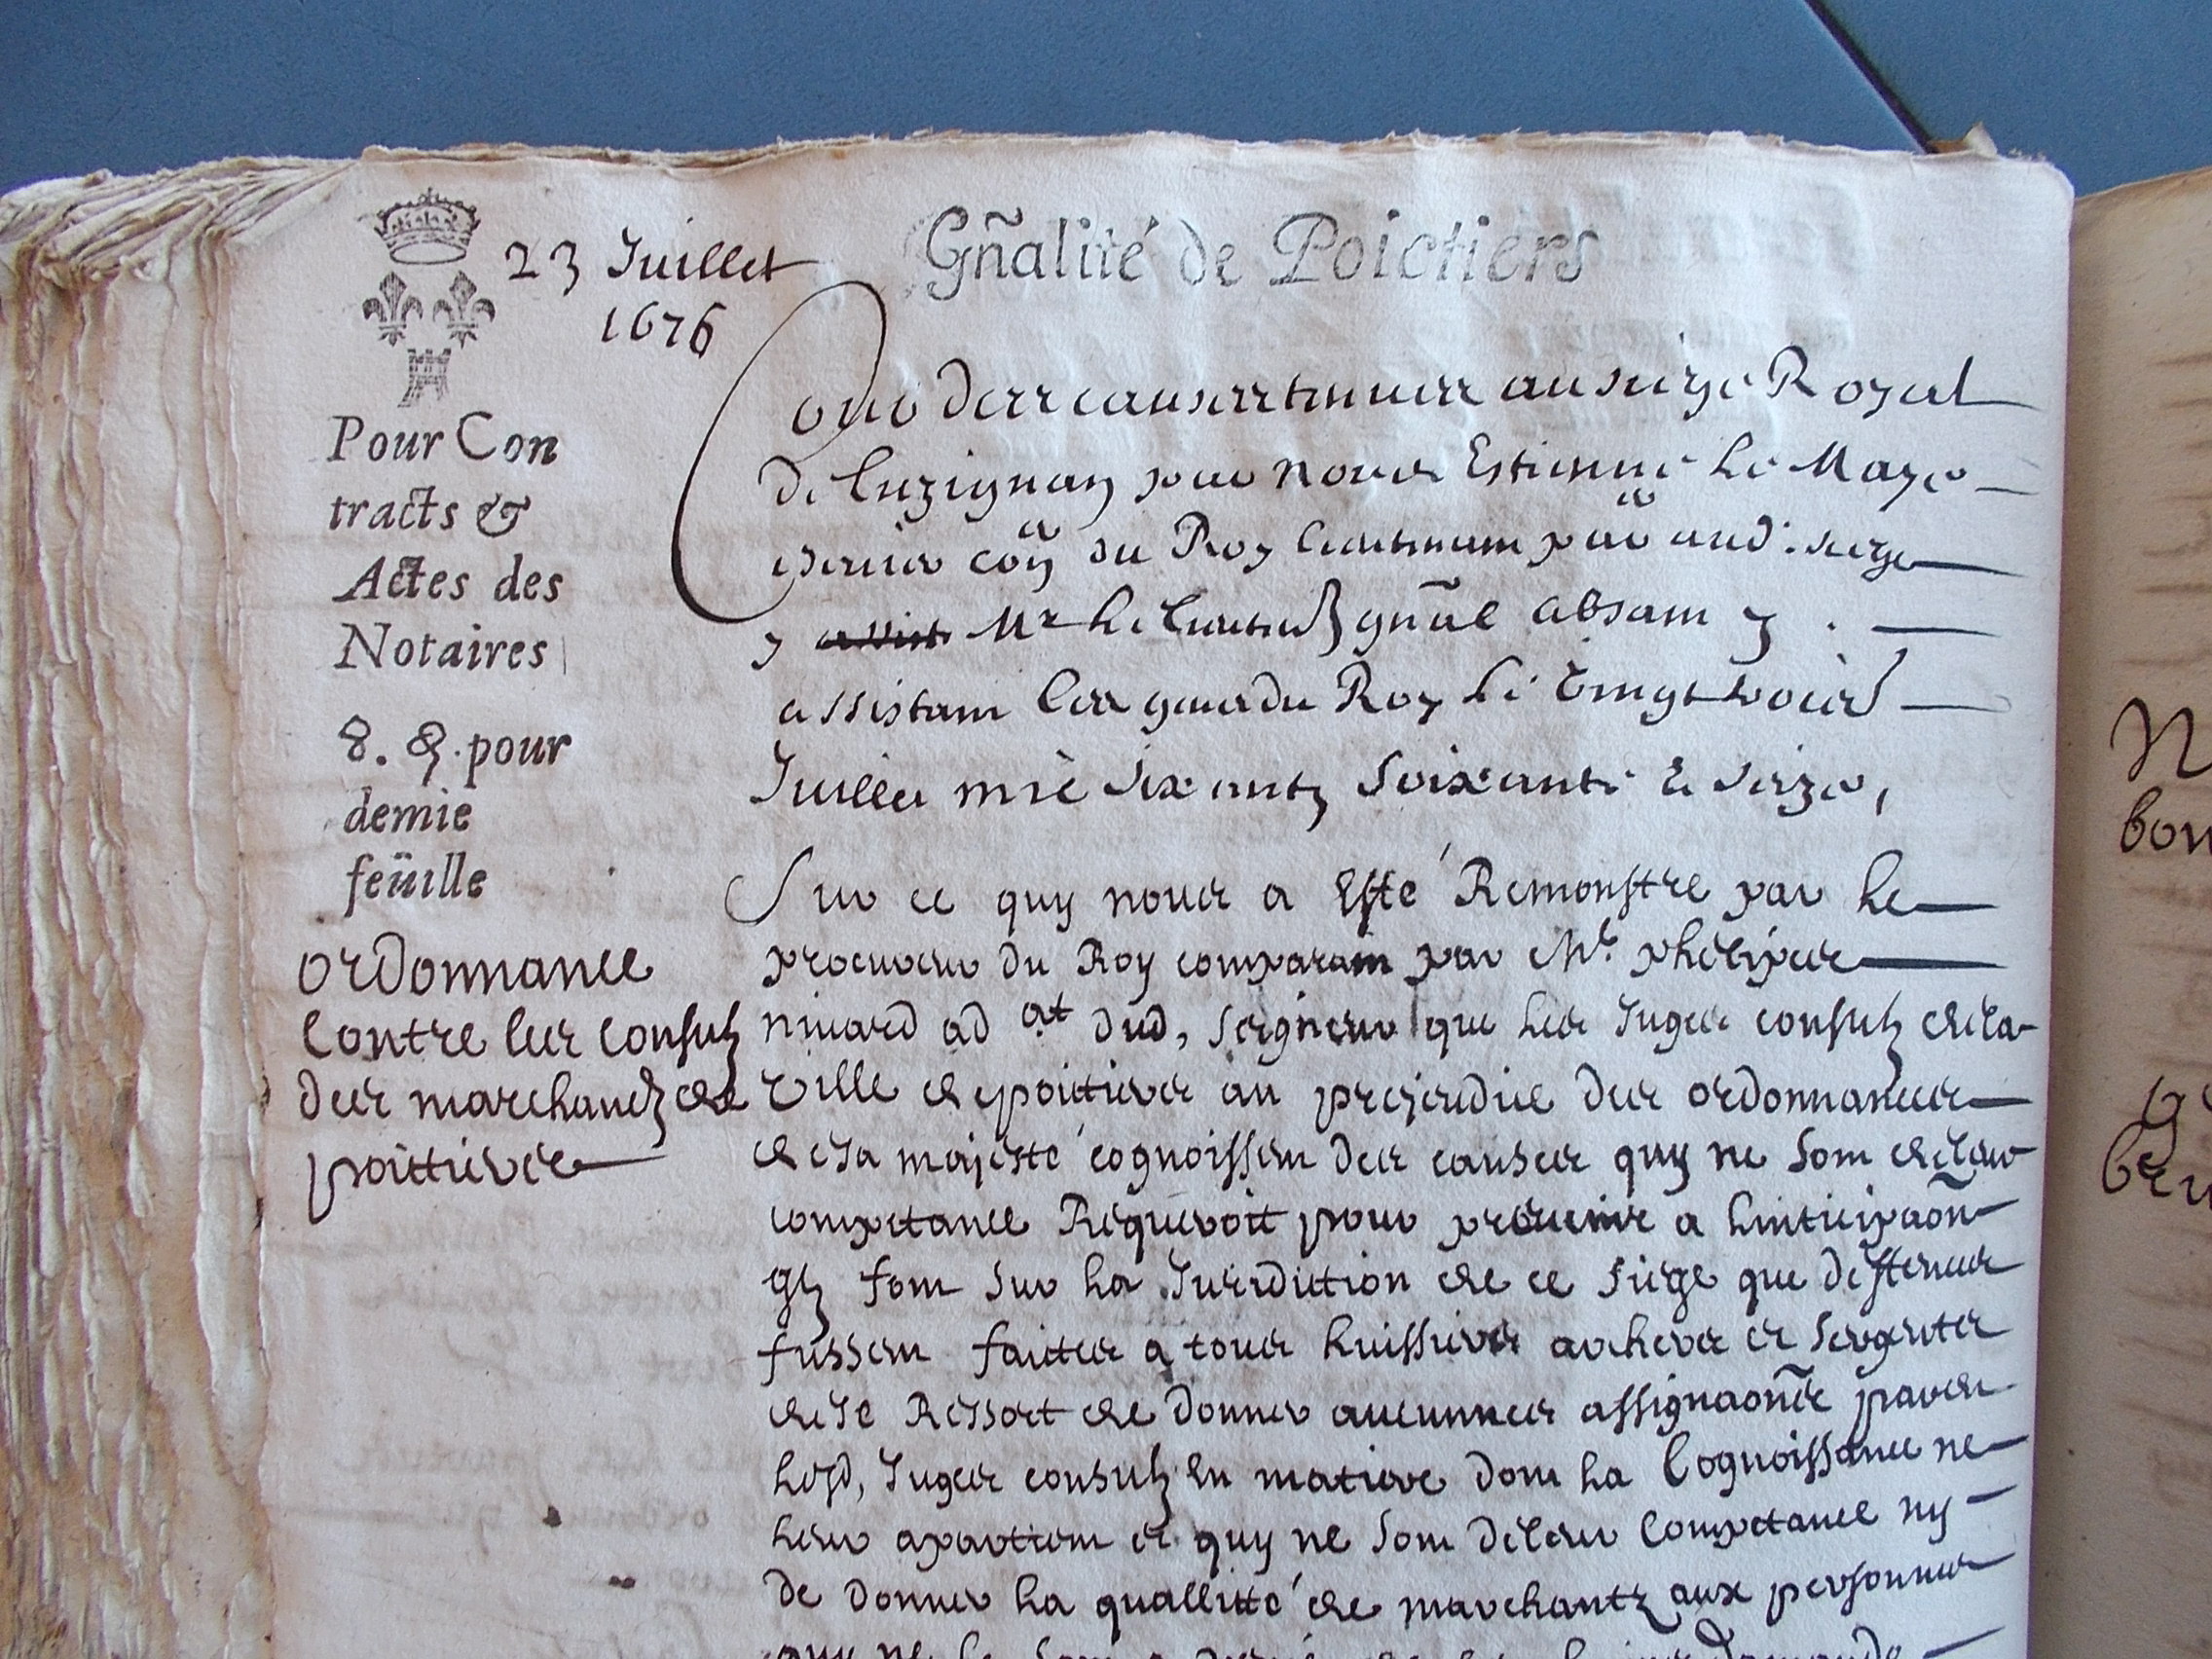 23 Juillet
1676
Gñalité de Poictiers
Pour Con
tracts &
Actes des
Notaires
8. d. pour
demie
feüille
ordonnance
Contre les consulz
des marchandz de
poictiers
Cour des causes tenues au siege Royal
de Luzignan par nous Estienne Le Maye
coner du Roy Lieutenant par aud. siege
Mr le Lieutend gñal absant
assistant les gens du Roy le vingt trois
Juillet mil six centz soixante & seize,
Sur ce quy nous a Esté Remonstre par le
procureur du Roy comparant par Me phelipes
ad at dud, seigneur que les Juges consulz de la
ville de poictiers au prejeudice des ordonnances
de sa majesté cognoissent des causes quy ne sont de leur
competance Requeroit pour prevenir a linticipaõn
qlz font sur la Jurisdiction de ce siege que deffences
fussent faictes a tous huissiers archers et sergentz
de se Ressort de donner aucunnes assignaõns
lesd, Juges consulz en matiere dont la Cognoissance ne
leur apartient et quy ne sont de leur Competance ny
de donner la quallitté de marchantz aux personnes
quy ne le sont a